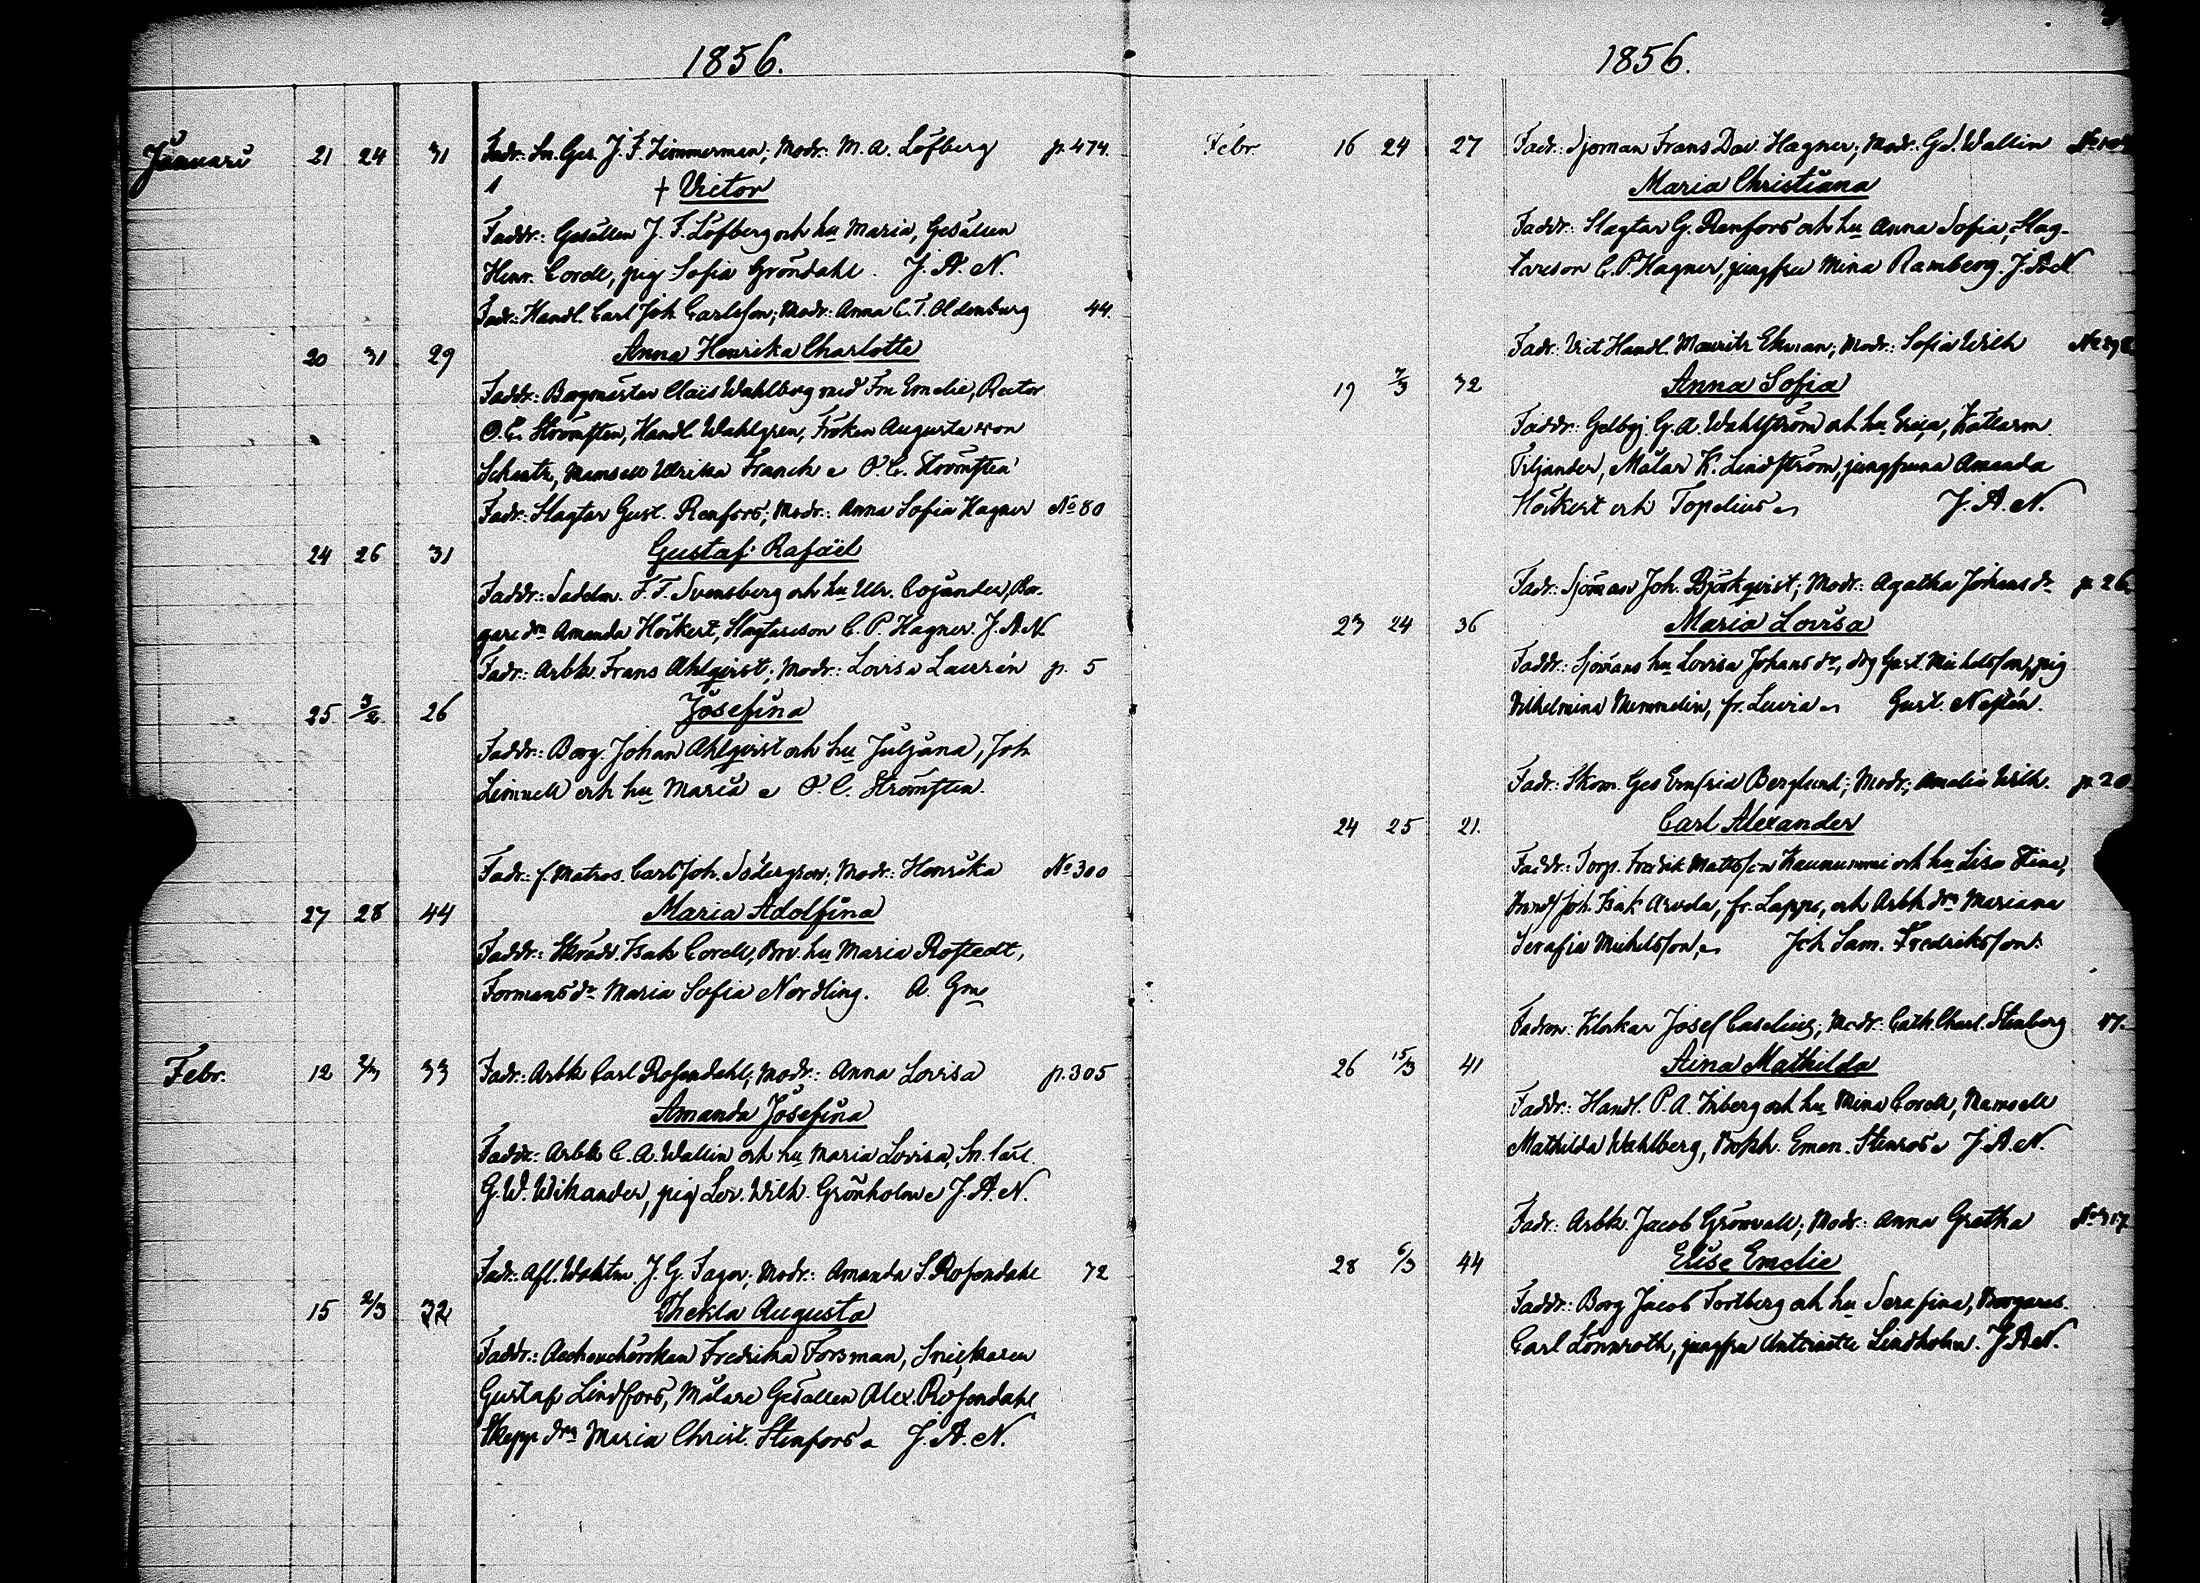 1856.
Januari 21 24 31 Fadr: Sn. Ges. J. F. Zimmerman; Modr: M. A. Löfberg p. 474.
† Victor
Faddr: Gesällen J. F. Löfberg och hu Maria, Gesällen
Henr. Corell, pig Sofia Gröndahl. J. A. N.
Fadr: Handl. Carl Joh. Carlsson; Modr: Anna C. T. Oldenburg 44.
20 31 29 Anna Henrika Charlotte
Faddr: Borgmästar Claës Wahlberg med Fru Emelie, Rector
O. C. Strömsten, Handl. Wahlgren, Fröken Augusta von
Schantz, Mamsell Ulrika Franck O. C. Strömsten
Fadr: Slagtar Gust. Renfors; Modr: Anna Sofia Hagner No 80
24 26 31 Gustaf Rafaël
Faddr: Sadelm. F. T. Svensberg och hu Ulr. Cojander, Bor-
gare dr Amanda Höckert, Slagtareson C. P. Hagner. J. A. N.
Fadr: Arbk. Frans Ahlqvist; Modr: Lovisa Laurén p. 5
25 3/2 26 Josefina
Faddr: Borg. Johan Ahlqvist och hu Juljana, Joh.
Limnell och hu Maria O. C. Strömsten.
Fadr: f. Matros. Carl Joh. Södergrén; Modr: Henrika No 300
27 28 44 Maria Adolfina
Faddr: Skrädr. Isak Corell, Brv. hu Maria Rostedt,
Formans dr Maria Sofia Nordling. A. Gm
Febr. 12 2/3 33 Fadr: Arbk Carl Rosendahl; Modr: Anna Lovisa p. 305
Amanda Josefina
Faddr: Arbk C. A. Wallin och hu Maria Lovisa, Sn. Carl
G. W. Wikander, pig Lov. Wilh. Grönholm J. A. N.
Fadr: Afl. Waktm. J. G. Fager; Modr: Amanda S. Rosendahl 72
15 2/3 32 Thekla Augusta
Faddr: Fredrika Forsman, Snickaren
Gustaf Lindfors, Målare Gesällen Alex. Rosendahl
Skepp. drs Maria Christ. Stenfors J. A. N.
1856.
Febr. 16 24 27 Fadr: Sjöman Frans Dav. Hagner; Modr: G. S. Wallin
Maria Christiana
Faddr: Slagtar G. Renfors och hu Anna Sofia, Slag-
tareson C. P. Hagner, jungfru Mina Ramberg. J. A. N.
Fadr: Vict. Handl. Mauritz Ekman; Modr: Sofia Wilh
19 7/3 32 Anna Sofia
Faddr: Gelbgj. G. A. Wahlström och hu Erica,
Filjander, Målar K. Lindström, jungfruna Amanda
Höckert och Topelius J. A. N.
Fadr: Sjöman Joh. Björkqvist; Modr: Agatha Johans dr p. 26
23 24 36 Maria Lovisa
Faddr: Sjömans hu Lovisa Johans dr, drg Gust. Michelsson, pig
Vilhelmina Memmelin, fr. Luvia Gust. Nestén.
Fadr: Skom. Ges Emfrid Berglund; Modr: Amalia Wilh. p. 20
24 25 21. Carl Alexander
Faddr: Torp. Fredrik Mattsson Kaunummi och hu Lisa Stina,
Joh. Isak Arvela, fr. Lappi, och Arbk drn Mariana
Serafia Michelsson, Joh Sam. Fredriksson.
Fadren: Klockar Josef Caselius; Modr: Cath. Charl. Stenberg 17.
26 15/3 41 Aina Mathilda
Faddr: Handl. P. A. Friberg och hu Mina Corell, Mamsell
Mathilda Wahlberg, Boph. Eman. Stenros J. A. N.
Fadr: Arbk. Jacob Grönvall; Modr: Anna Gretha No 317
28 6/3 44 Elise Emelie
Faddr: Borg Jacob Fortberg och hu Serafina, Borgares.
Carl Lönnroth, jungfru Lindholm. J. A. N.